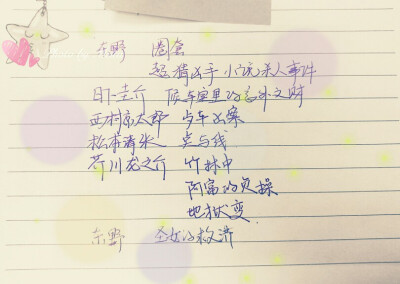 东野 圈套
超猜凶手 小说杀人事件
日下圭介 候车室里的意外之财
西村京太郎 卧车凶案
松本清张 点与线
芥川龙之介 竹林中
阿富的贞操
地狱变
东野 圣女的救济